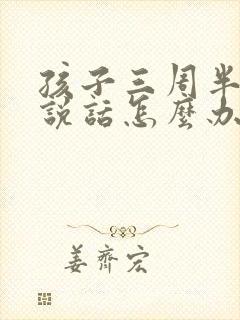 孩子三周半
說話怎麼办
姜齊宏